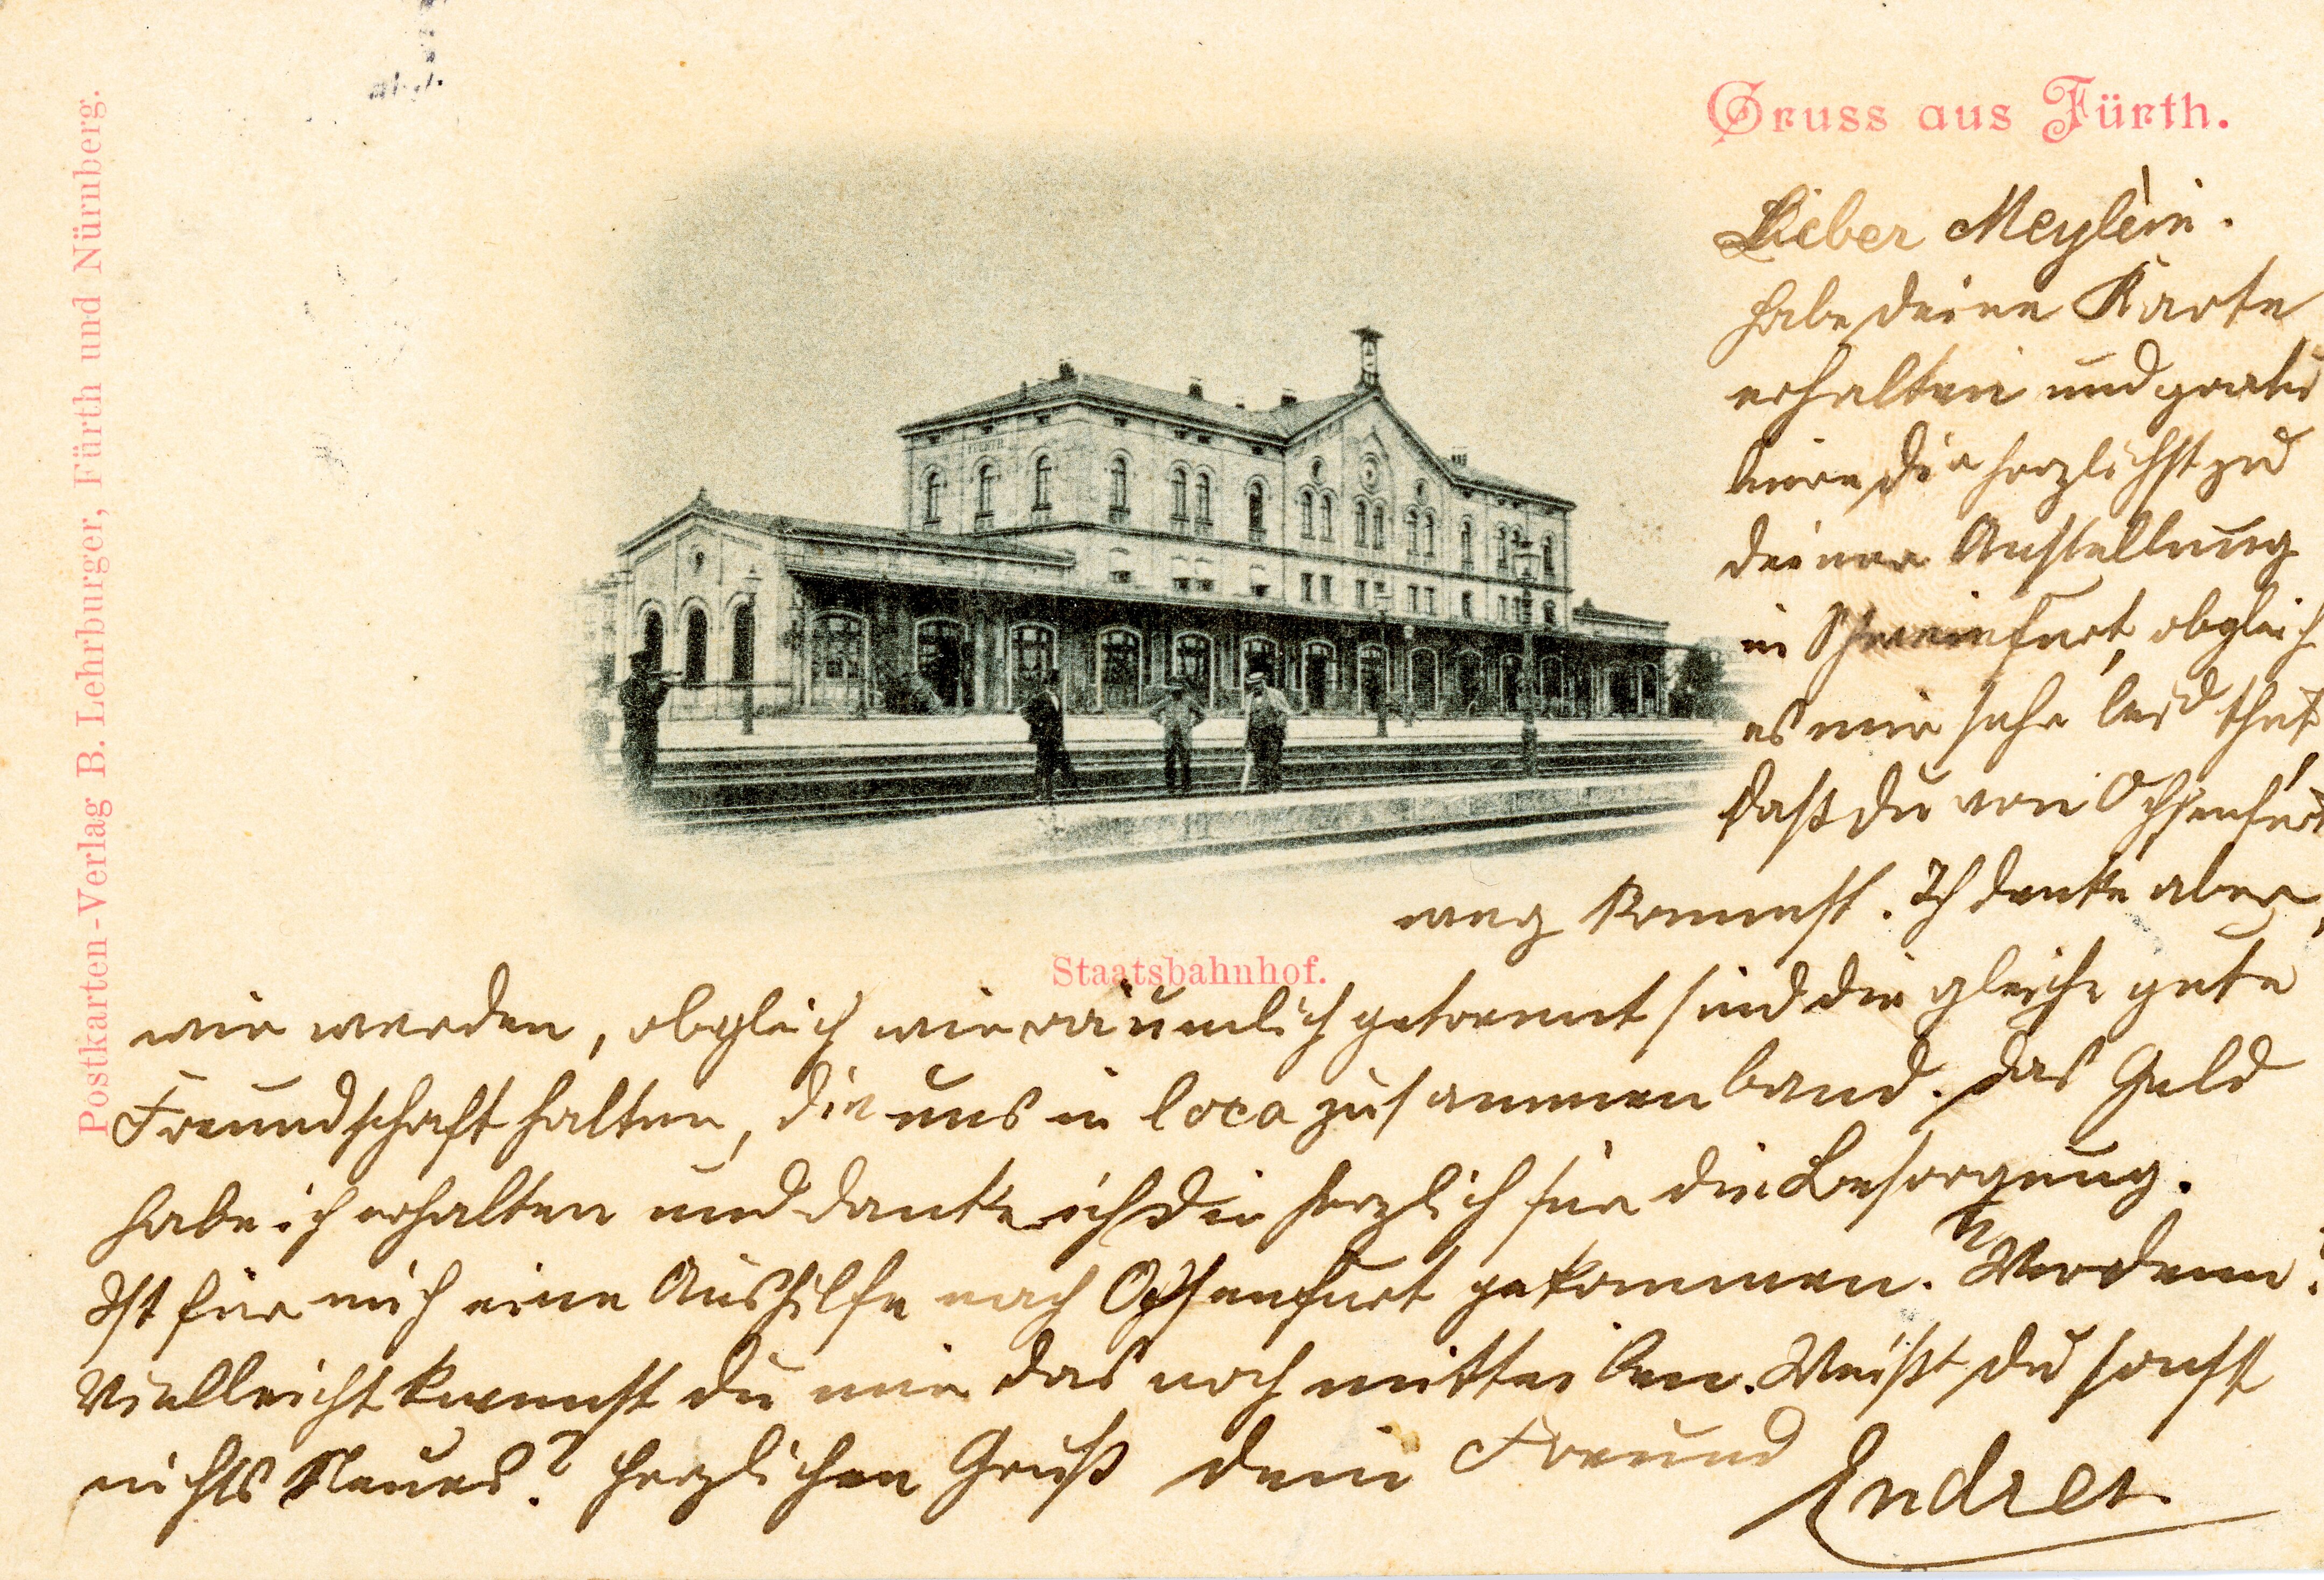 Gruss aus Fürth.
Lieber Meylein.
habe deine Karte
erhalten und gratu
liere dir herzlichst zu
deiner Anstellung
in Schweinfurt, obgleich
es mir sehr leid thut,
daß du von Ochsenfurt
weg kommst. Ich denke aber,
Staatsbahnhof.
wir werden, obgleich wir räumlich getrennt sind die gleiche gute
Freundschaft halten, die uns in loco zusammen band. Das Geld
habe ich erhalten und danke ich dir herzlich für die Besorgung.
Ist für mich eine Aushilfe nach Ochsenfurt gekommen. Wer denn?
Vielleicht kannst du mir das noch mitteilen. Weißt du sonst
nichts Neues? Herzlichen Gruß dein Freund
Endres
Postkarten-Verlag B. Lehrburger, Fürth und Nürnberg.
FÜRTH